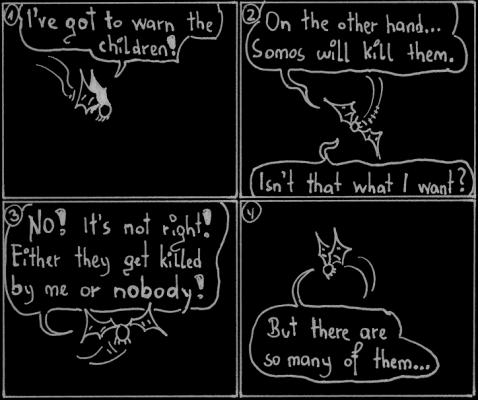 1
I've got to warn the
children!
2
On the other hand...
Somos will kill them.
Isn't that what I want?
3
NO! It's not right!
Either they get killed
by me or nobody!
4
But there are
so many of them...